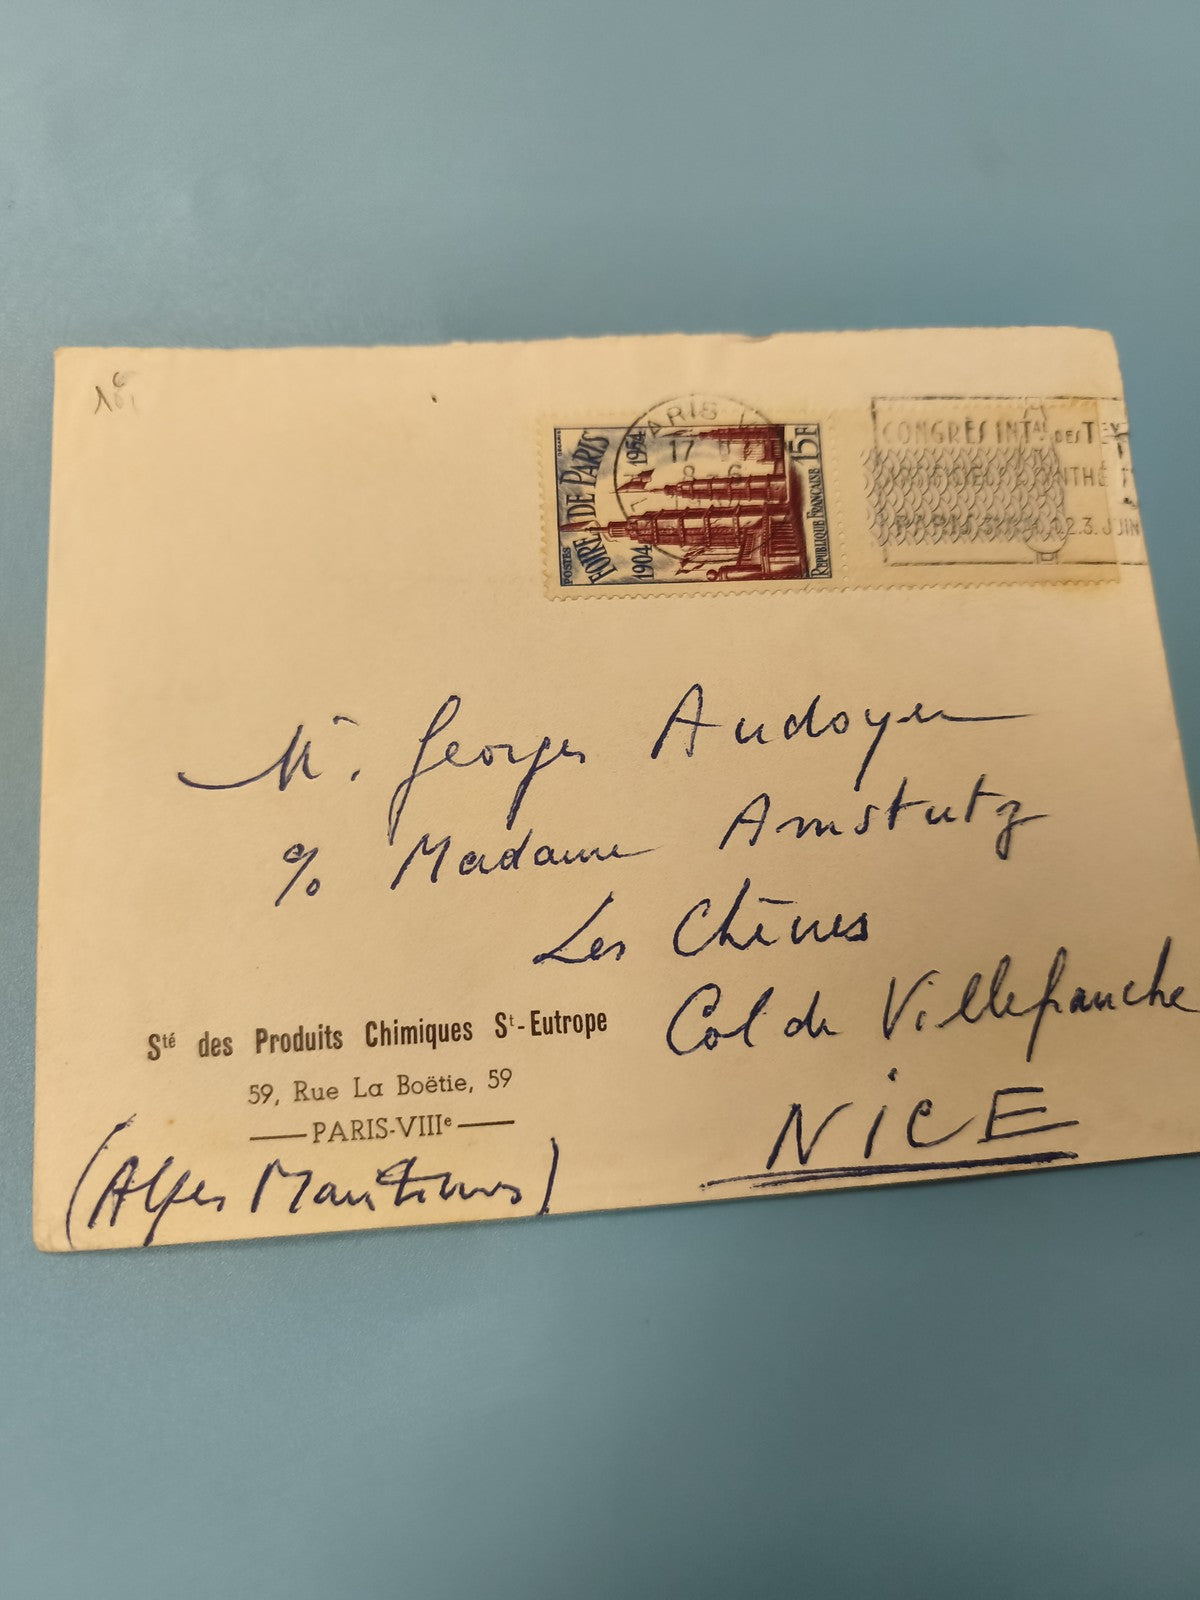 PARIS V
17 H
8-6
CONGRÈS INTAL DES TEX
PARIS 31 12.3. JUIN
POSTES
FOIRE DE PARIS
1904
1954
15F
RÉPUBLIQUE FRANÇAISE
Mr. Georges Audoyer
% Madame Amstutz
Les Chênes
Col de Villefranche
NICE
Sté des Produits Chimiques St-Eutrope
59, Rue La Boëtie, 59
PARIS-VIIIe
(Alpes Maritimes)